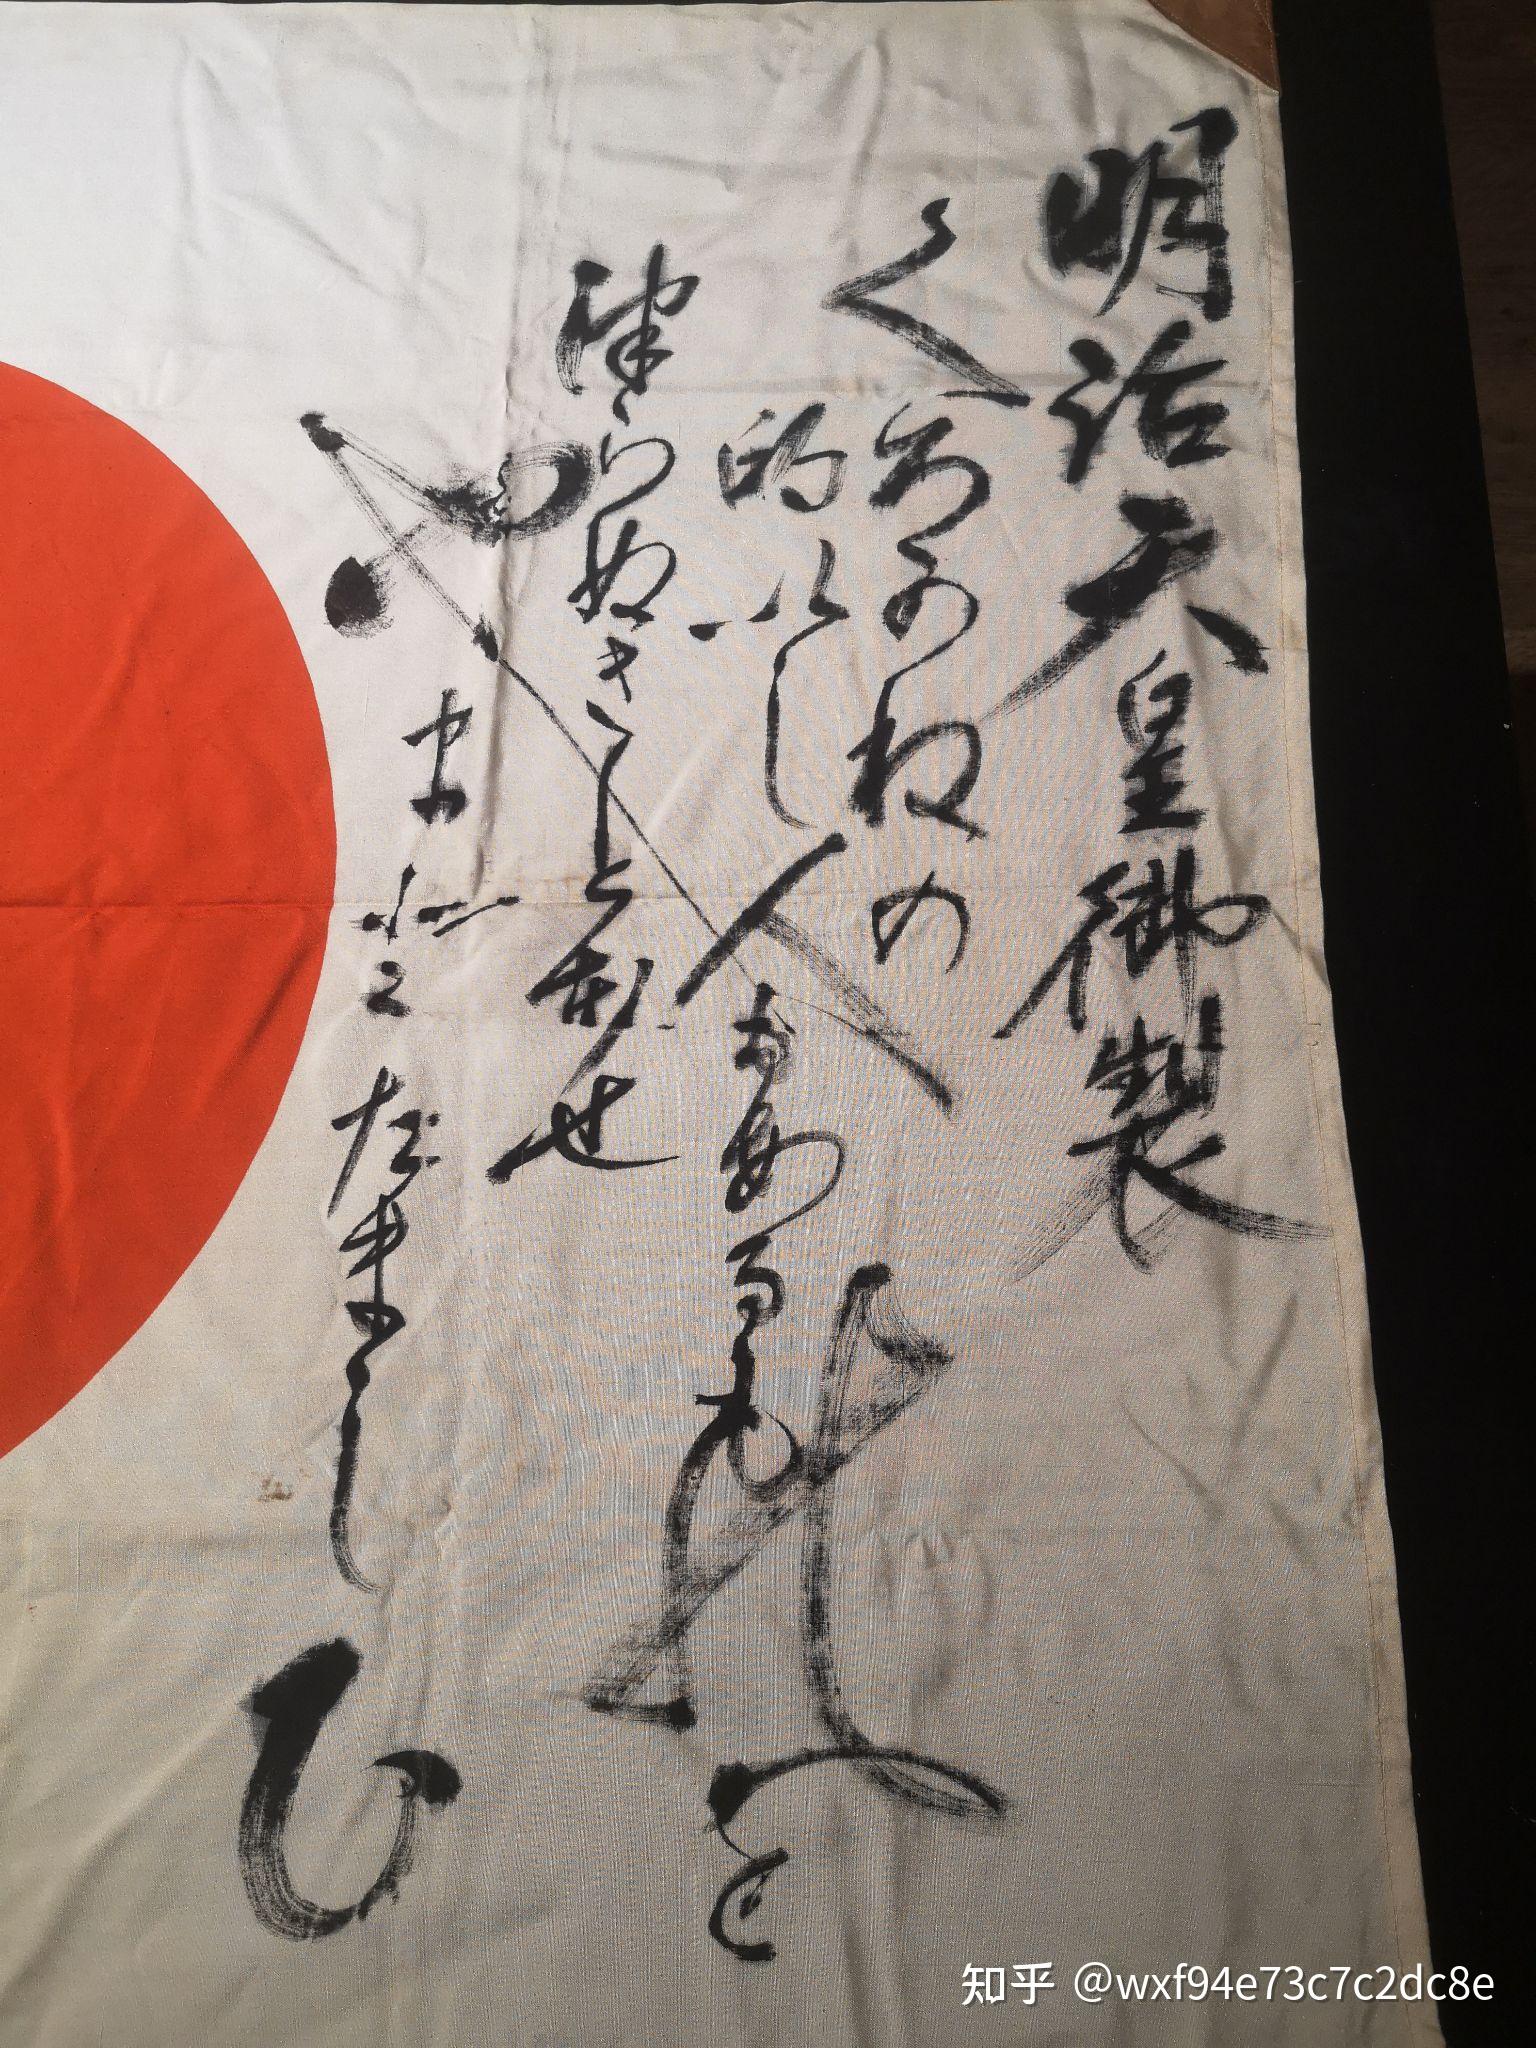 明治天皇御製
くろかねの
的いし人もあるものを
つらぬきとほせ
やまとたましひ
知乎 @wxf94e73c7c2dc8e